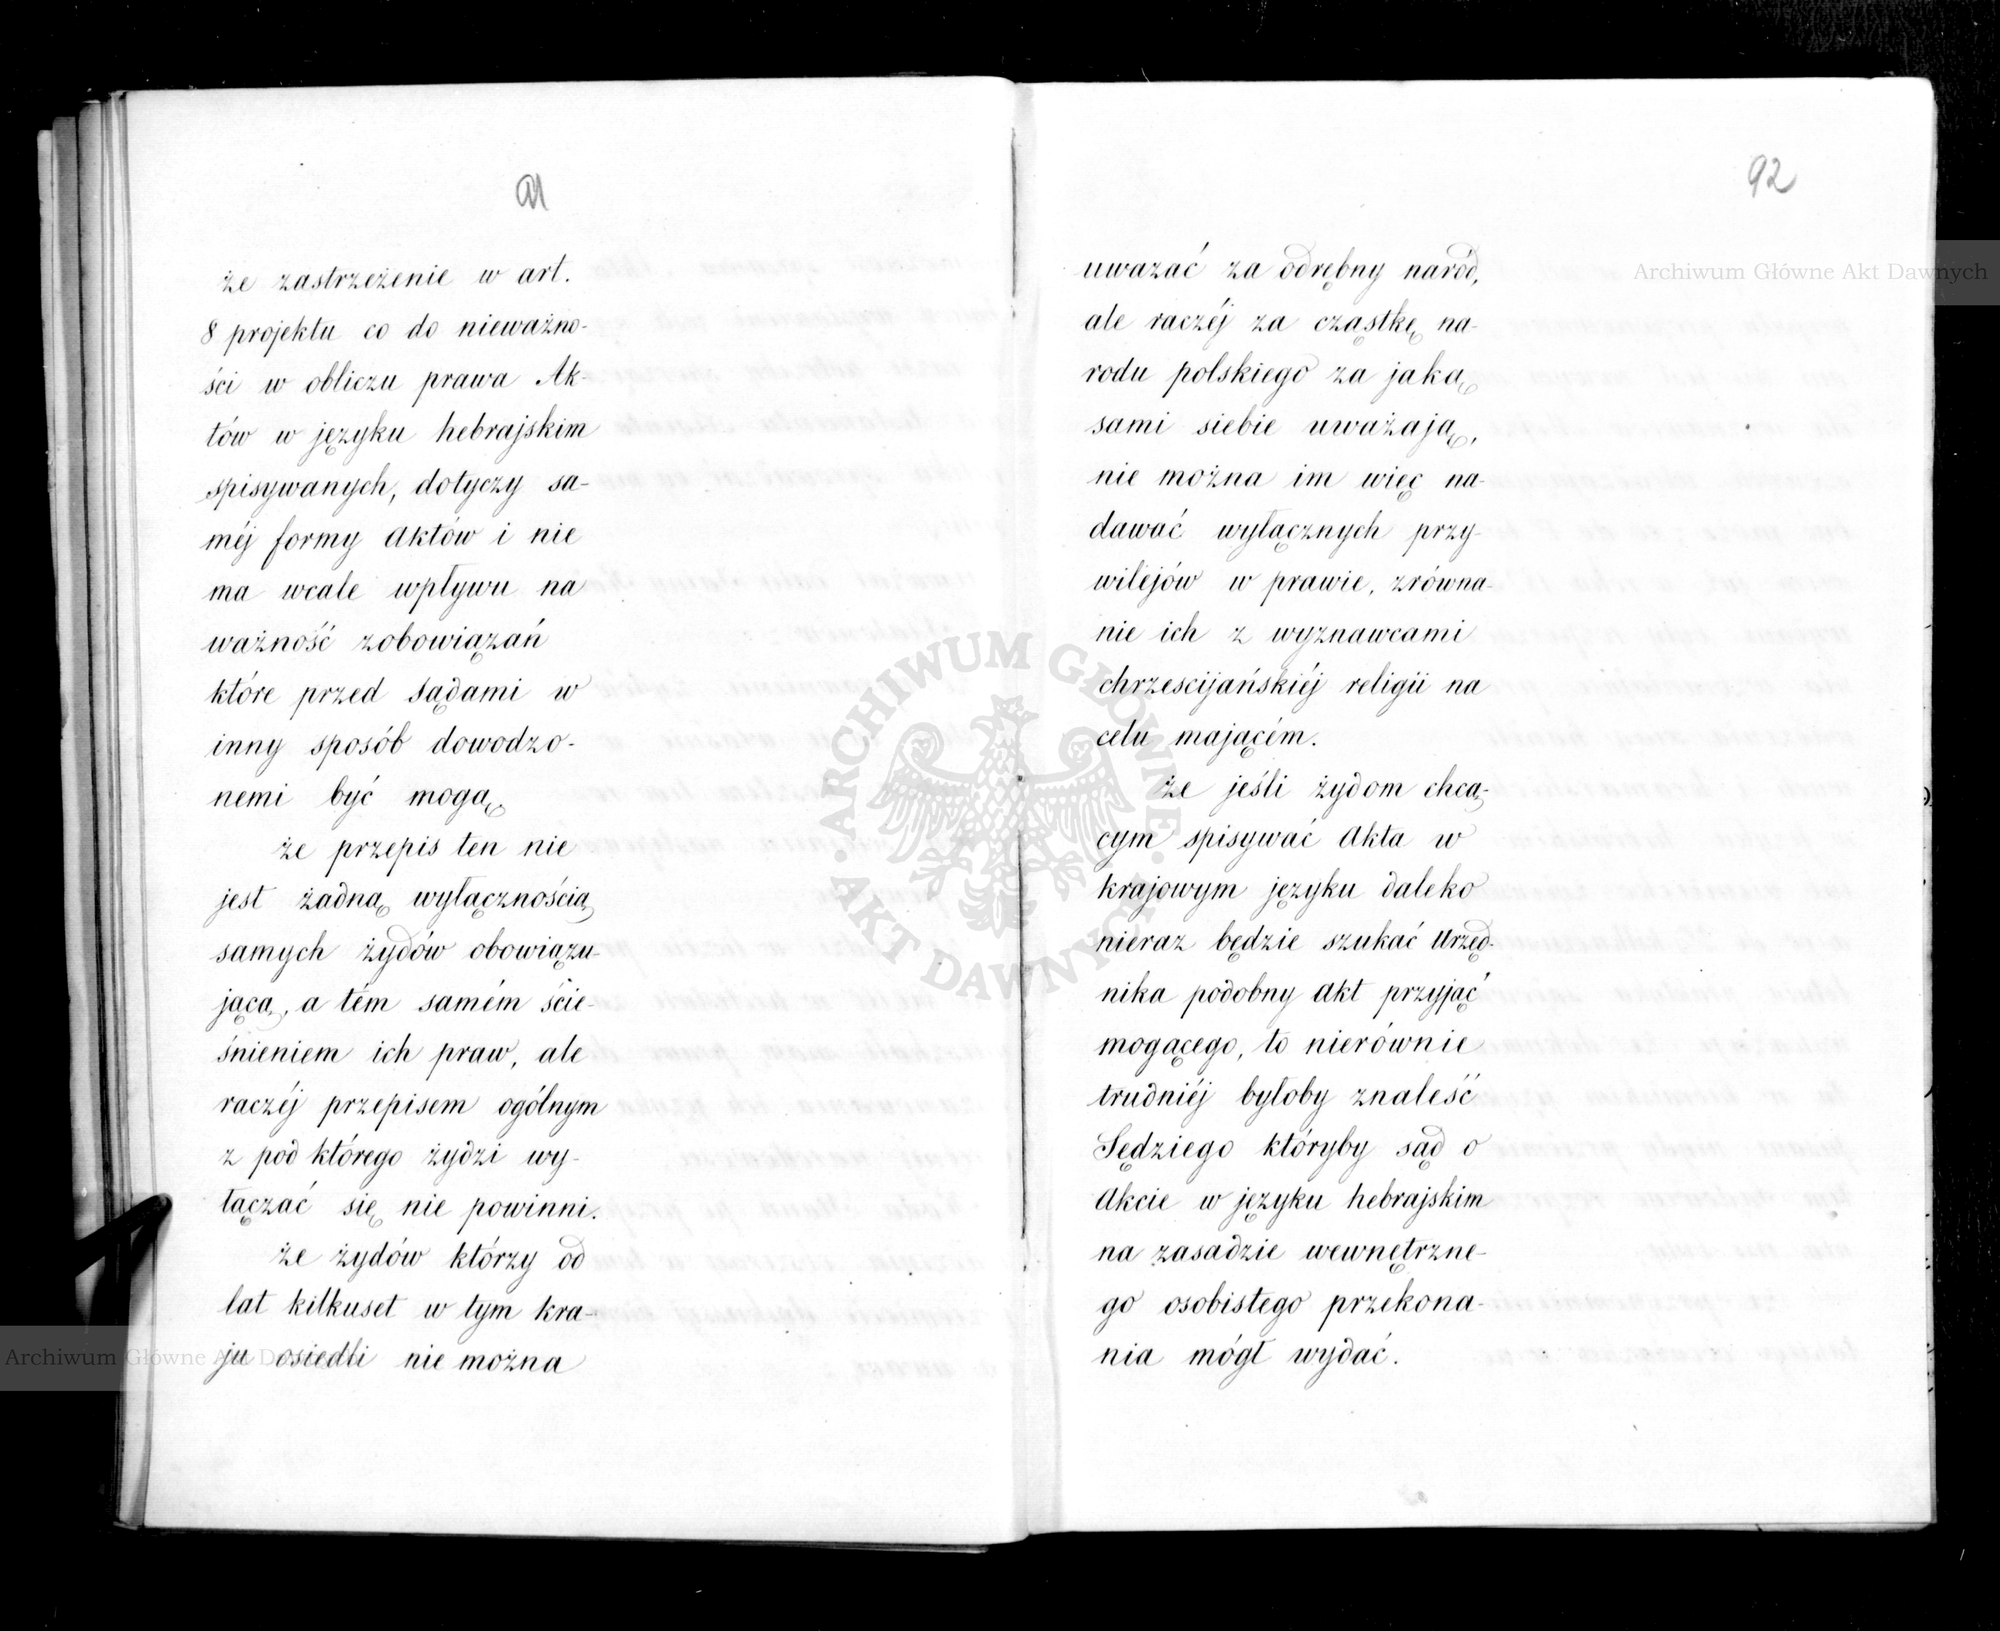 91
że zastrzeżenie w art.
8 projektu co do nieważno-
ści w obliczu prawa Ak-
tów w języku hebrajskim
spisywanych, dotyczy sa-
méj formy Aktów i nie
ma wcale wpływu na
ważność zobowiązań
które przed Sądami w
inny sposób dowodzo-
nemi być mogą,
że przepis ten nie
jest żadną wyłącznością
samych żydów obowiązu-
jącą, a tém samém ście-
śnieniem ich praw, ale
raczéj przepisem ogólnym
z pod którego żydzi wy-
łączać się nie powinni.
że żydów którzy od
lat kilkuset w tym kra-
ju osiedli nie można
92
uwazać za odrębny naród,
ale raczéj za cząstkę na-
rodu polskiego za jaką
sami siebie uważają,
nie można im więc na-
dawać wyłącznych przy-
wilejów w prawie, zrówna-
nie ich z wyznawcami
chrzescijańskiéj religii na
celu mającém.
że jeśli żydom chcą-
cym spisywać Akta w
krajowym języku daleko
nieraz będzie szukać Urzęd-
nika podobny Akt przyjąć
mogącego, to nierównie
trudniéj byłoby znaleść
Sędziego któryby sąd o
Akcie w języku hebrajskim
na zasadzie wewnętrzne-
go osobistego przekona-
nia mógł wydać.
Archiwum Główne Akt Dawnych
Archiwum Główne Akt Dawnych
ARCHIWUM GŁÓWNE AKT DAWNYCH